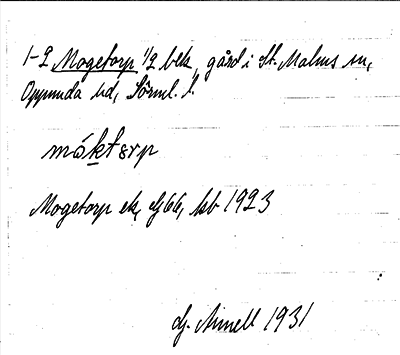 1-2 Mogetorp 1/2 bek, gård i St. Malms sn,
Oppunda hd, Sörml. l.
móktorp
Mogetorp ek, dj 66, kb 1923
dj. Ainell 1931